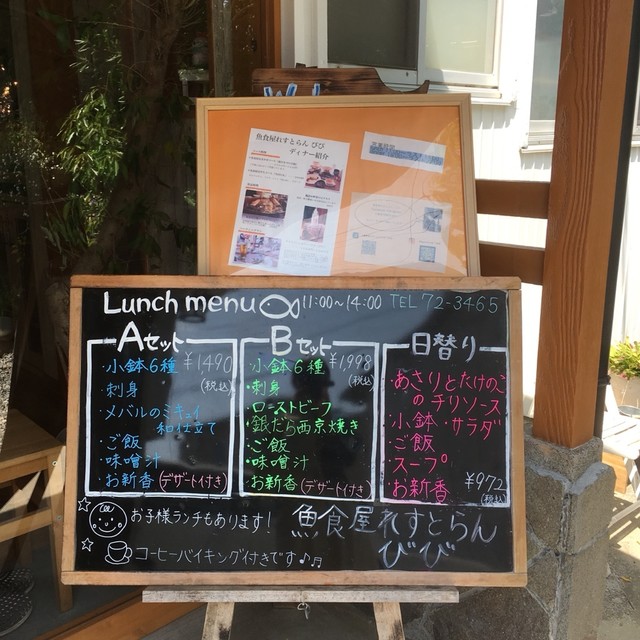 魚食屋れすとらん びび
ディナー紹介
Lunch menu 11:00~14:00 TEL 72-3465
Aセット
・小鉢6種 ¥1,490
・刺身 (税込)
・メバルのミキュイ
和仕立て
・ご飯
・味噌汁
・お新香 (デザート付き)
Bセット
・小鉢6種 ¥1,998
・刺身 (税込)
・ローストビーフ
・銀だら西京焼き
・ご飯
・味噌汁
・お新香 (デザート付き)
日替り
・あさりとたけのこ
のチリソース
・小鉢・サラダ
・ご飯
・スープ
・お新香 ¥972
(税込)
お子様ランチもあります!
コーヒーバイキング付きです♪♬
魚食屋れすとらん
びび